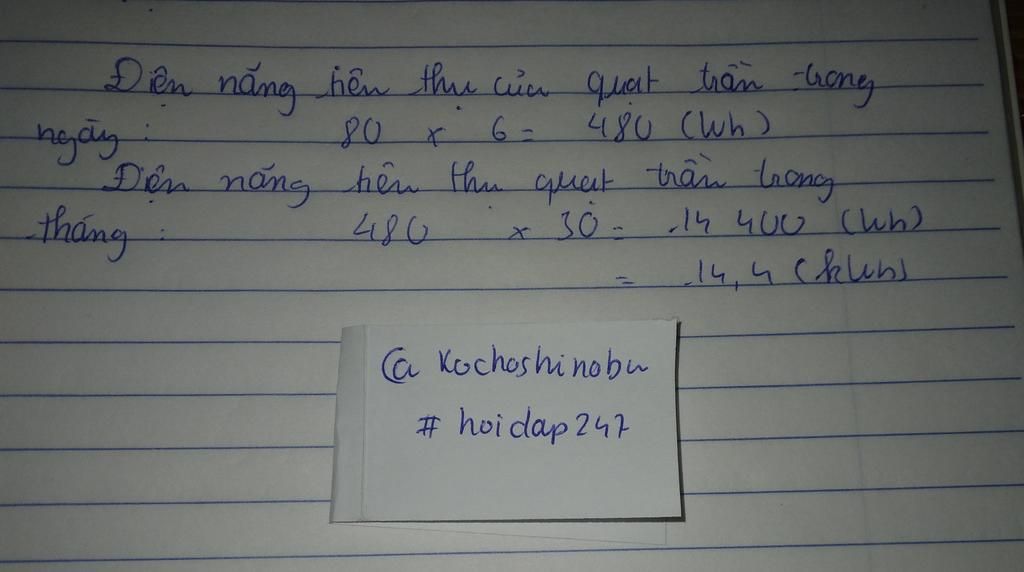 Điện năng tiêu thụ của quạt trần trong
ngày : 80 x 6 = 480 (Wh)
Điện năng tiêu thụ quạt trần trong
tháng : 480 x 30 = 14 400 (Wh)
= 14,4 (kWh)
@ Kochoshinobu
# hoidap247